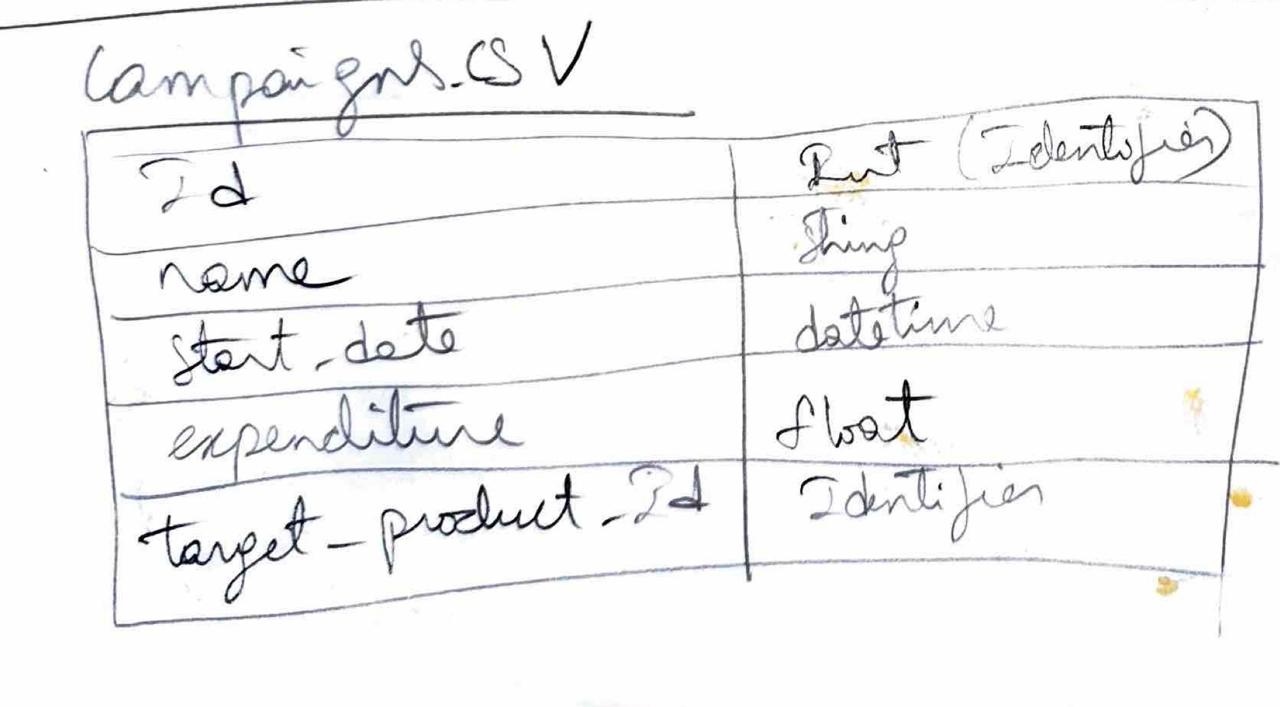 Campaigns.CSV
Id Int (Identifier)
name String
start_date datetime
expenditure float
target_product_Id Identifier